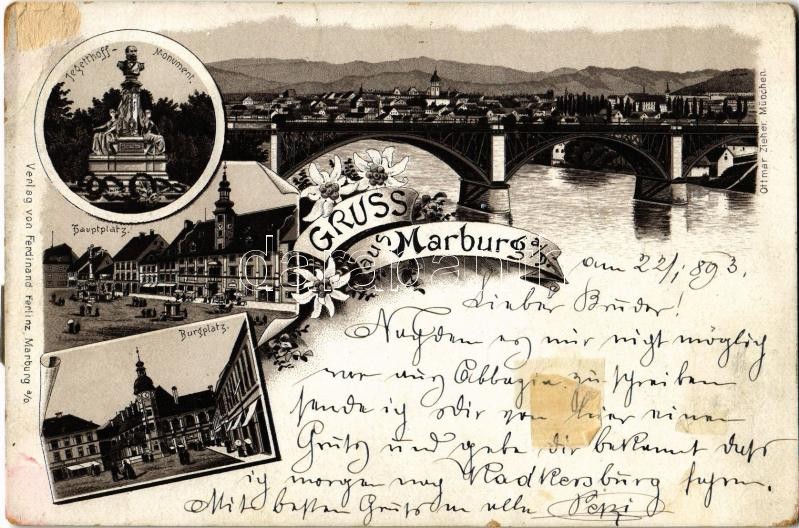 Tegetthoff-Monument.
Hauptplatz.
Burgplatz.
GRUSS
aus Marburg a/D.
Verlag von Ferdinand Ferlinz, Marburg a/D.
Ottmar Zieher, München.
darabanth
am 22/1 893.
Lieber Bruder!
Nachdem es mir nicht möglich
war aus Abbazia zu schreiben
sende ich dir von hier einen
Gruß und gebe dir bekannt daß
ich morgen nach Radkersburg fahre.
Mit besten Grüßen an alle Pepi